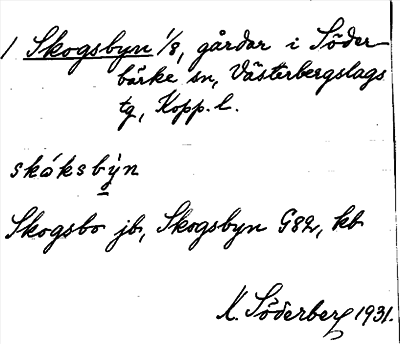 1 Skogsbyn 1/8, gårdar i Söder-
bärke sn, Västerbergslags
tg, Kopp. l.
skóksbỳn
Skogsbo jb, Skogsbyn G82, kb
K. Söderberg 1931.